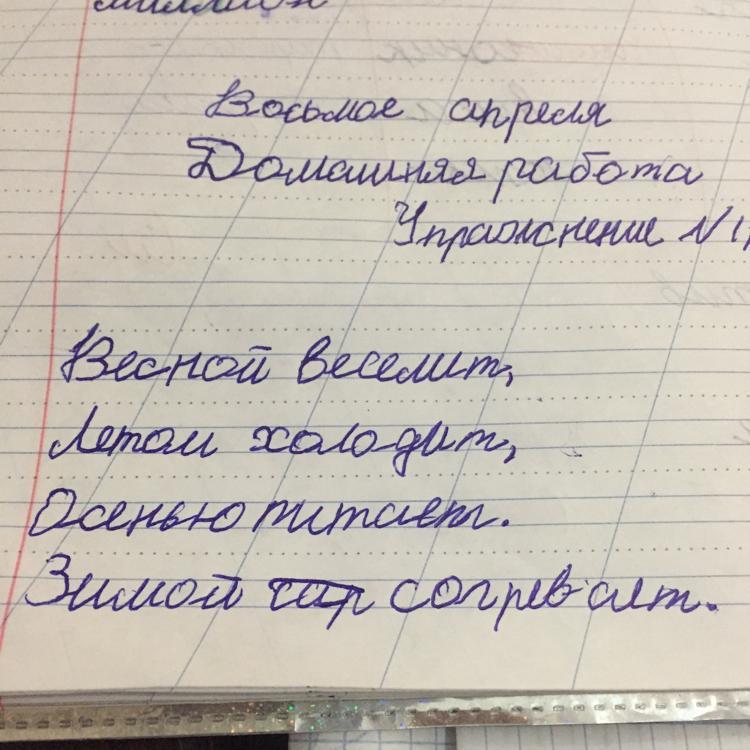 миллион
Восьмое апреля
Домашняя работа
Упражнение N 11
Весной веселит,
Летом холодит,
Осенью питает.
Зимой согревает.